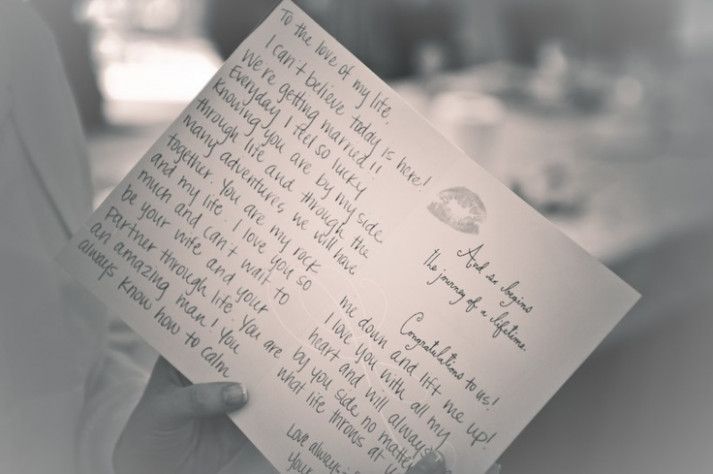 To the love of my life,
I can't believe today is here!
We're getting married!!
Everyday I feel so lucky
knowing you are by my side
through life and through the
many adventures we will have
together. You are my rock
and my life. I love you so
much and can't wait to
be your wife and your
partner through life. You are
an amazing man! You
always know how to calm
And so begins
the journey of a lifetime.
Congratulations to us!
me down and lift me up!
I love you with all my
heart and will always
by you side no matter
what life throws at
Love always
your